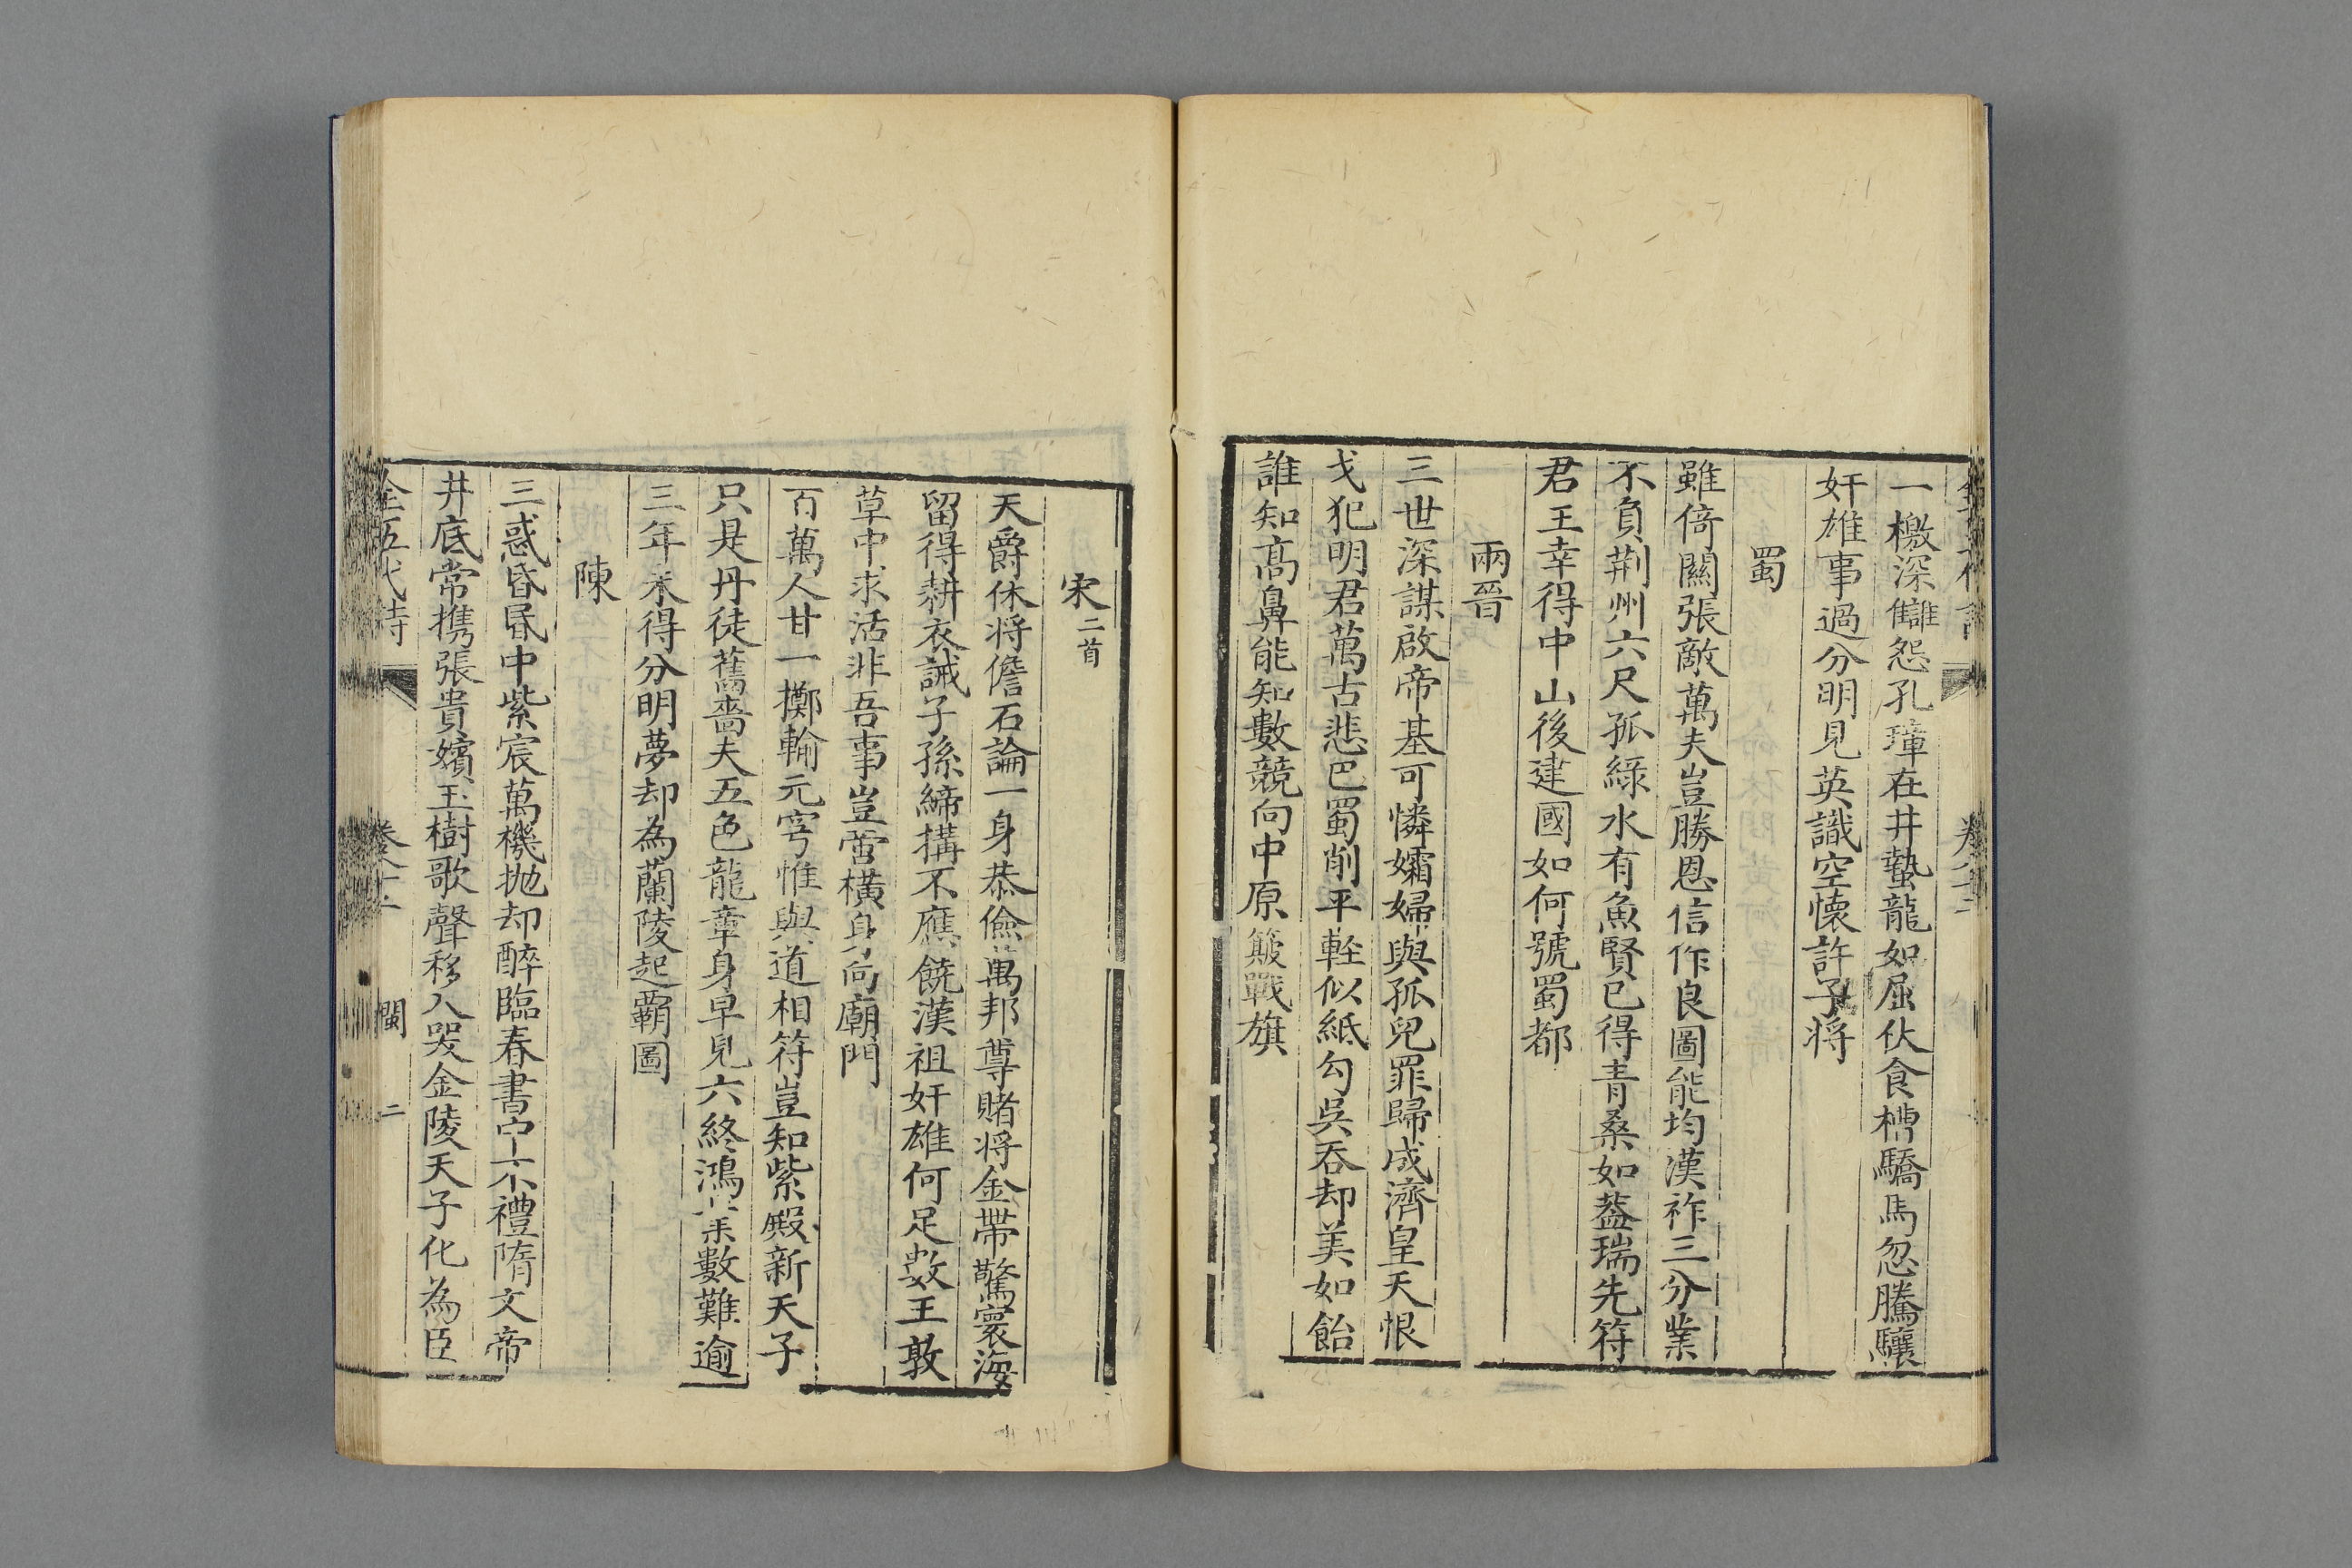 一檄深讎怨孔璋在井蟄龍如屈伏食槽驕馬忽騰驤
奸雄事過分明見英識空懷許子将
蜀
雖倚關張敵萬夫豈勝恩信作良圖能均漢祚三分業
不負荆州六尺孤綠水有魚賢已得青桑如葢瑞先符
君王幸得中山後建國如何號蜀都
兩晉
三世深謀啟帝基可憐孀婦與孤兒罪歸成濟皇天恨
戈犯明君萬古悲巴蜀削平輊似紙勾吳吞却美如飴
誰知高鼻能知數競向中原簸戰旗
宋二首
天爵休将儋石論一身恭儉萬邦尊賭将金帶驚寰海
留得耕衣誡子孫締搆不應饒漢祖奸雄何足數王敦
草中求活非吾事豈啻橫身向廟門
百萬人甘一擲輸元穹惟與道相符豈知紫殿新天子
只是丹徒舊嗇夫五色龍章身早見六終鴻業數難逾
三年未得分明夢却為蘭陵起霸圖
陳
三惑昏昏中紫宸萬機抛却醉臨春書中不禮隋文帝
井底常攜張貴嬪玉樹歌聲移入哭金陵天子化為臣
全五代詩
閩 二